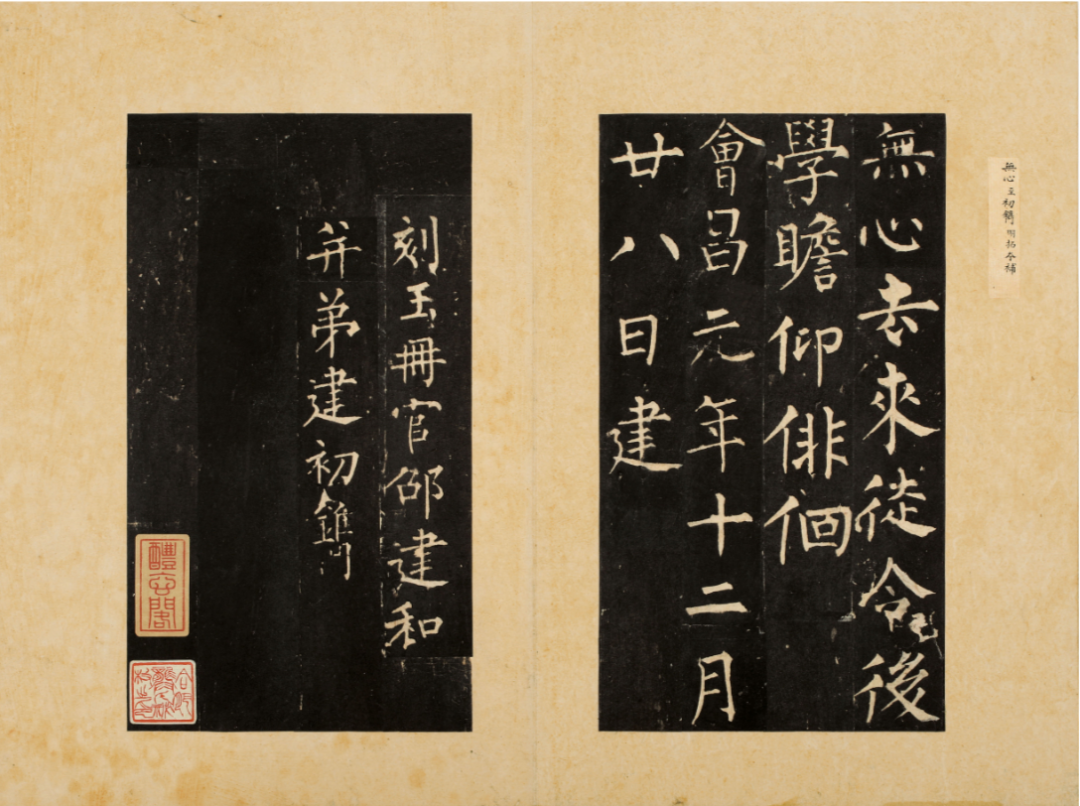 無心至初鐫明拓今補
無心去來徒令後
學瞻仰俳佪
會昌元年十二月
廿八日建
刻玉冊官邵建和
并弟建初鐫